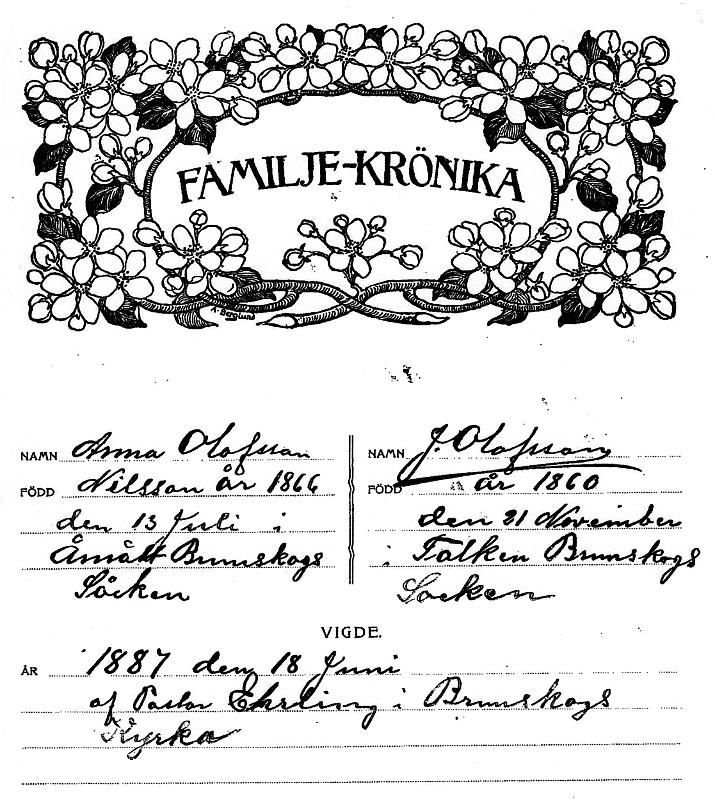 FAMILJE-KRÖNIKA
A. Berglund
NAMN Anna Olofsson
FÖDD Nilsson år 1866
den 13 Juli i
Åmått Brunskogs
Såcken
NAMN J. Olofsson
FÖDD år 1860
den 21 November
i Falken Brunskogs
Socken
VIGDE.
ÅR 1887 den 18 Juni
af Pastor Ehrling i Brunskogs
Kyrka